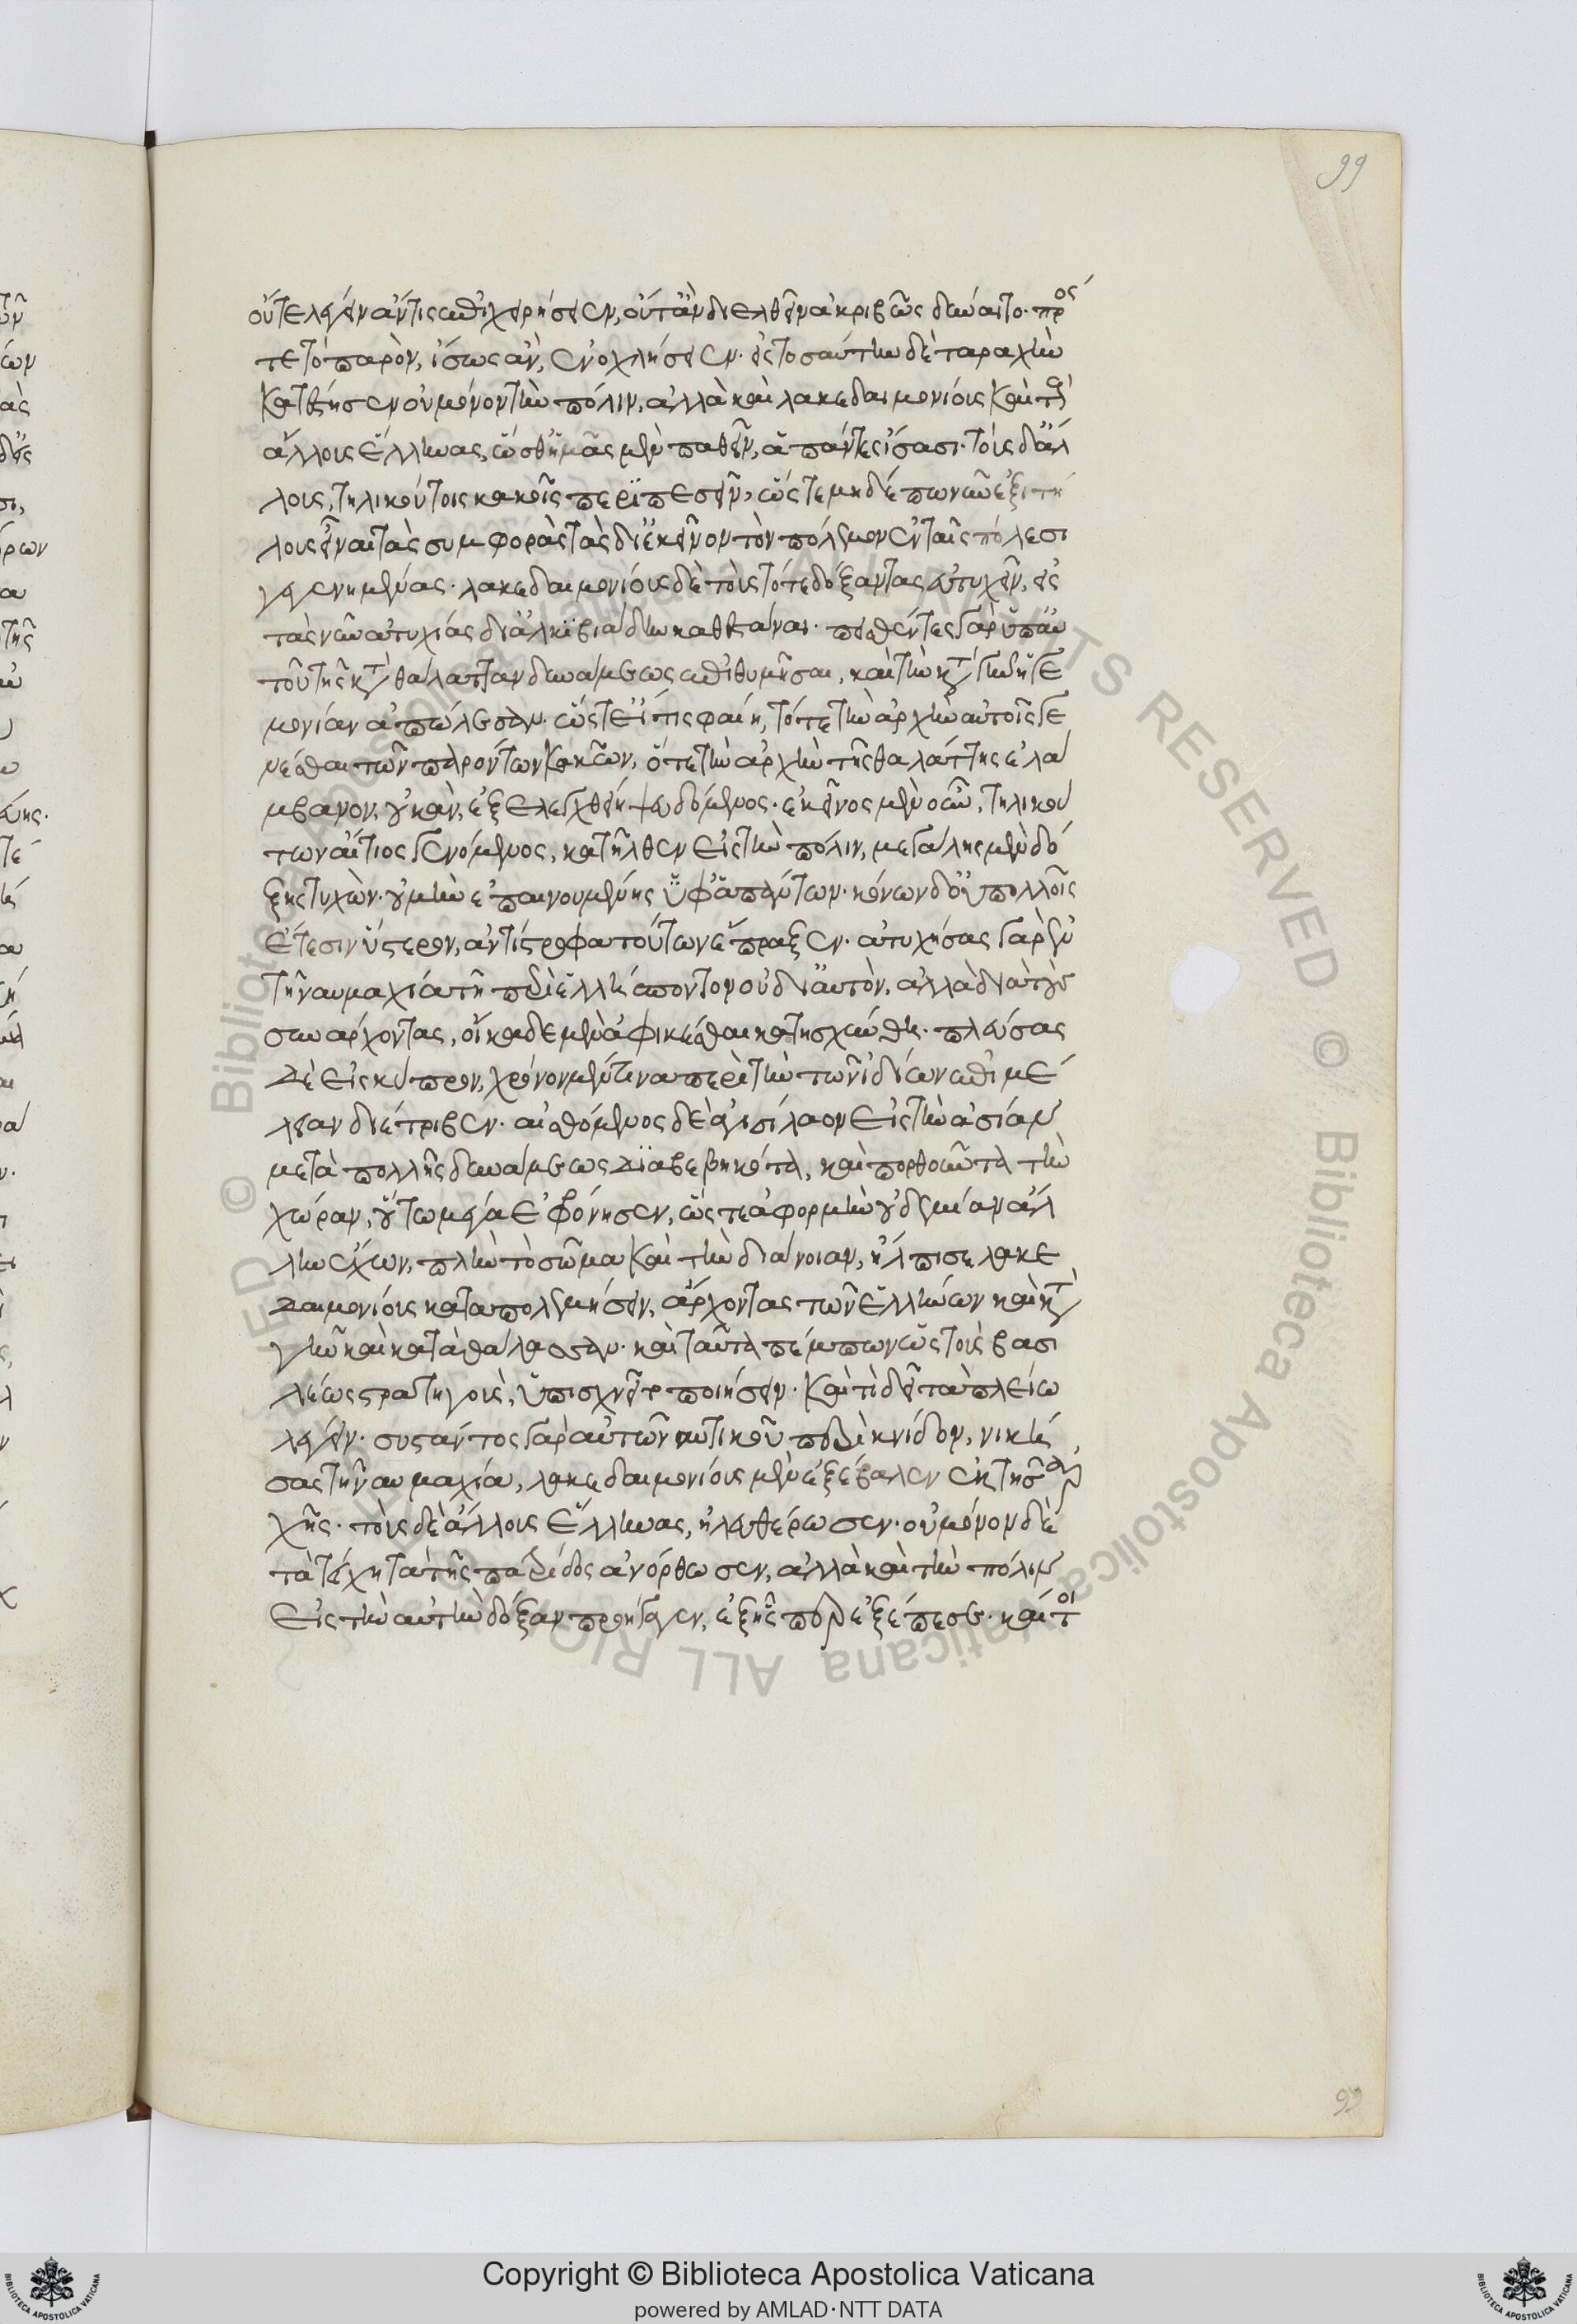 99
οὔτε λέγειν ἄν τις ἐπιχειρήσειεν, οὔτ' ἂν διελθεῖν ἀκριβῶς δύναιτο· πρός
τε τὸ παρὸν, ἴσως ἂν, ἐνοχλήσειεν· εἰς τοσαύτην δὲ ταραχὴν
κατέστησεν οὐ μόνον τὴν πόλιν, ἀλλὰ καὶ λακεδαιμονίους καὶ τοὺς
ἄλλους ἕλληνας, ὥσθ' ἡμᾶς μὲν παθεῖν, ἃ πάντες ἴσασι· τοὺς δ' ἄλ
λους, τηλικούτοις κακοῖς περιπεσεῖν, ὥστε μηδέπω νῦν ἐξιτή
λους εἶναι τὰς συμφορὰς τὰς δι' ἐκεῖνον τὸν πόλεμον ἐν ταῖς πόλεσι
γεγενημένας· λακεδαιμονίους δὲ τοὺς τότε δόξαντας εὐτυχεῖν, εἰς
τὰς νῦν ἀτυχίας δι' ἀλκιβιάδην καθεστάναι· πεισθέντες γὰρ ὑπ' αὐ
τοῦ τῆς κατὰ θάλατταν δυνάμεως ἐπιθυμῆσαι, καὶ τὴν κατὰ γῆν ἡγε
μονίαν ἀπώλεσαν· ὥστ' εἴ τις φαίη, τότε τὴν ἀρχὴν αὐτοῖς γε
νέσθαι τῶν παρόντων κακῶν, ὅτε τὴν ἀρχὴν τῆς θαλάττης ἐλά
μβανον, οὐκ ἂν, ἐξελεγχθείη ψευδόμενος· ἐκεῖνος μὲν οὖν, τηλικού
των αἴτιος γενόμενος, κατῆλθεν εἰς τὴν πόλιν, μεγάλης μὲν δό
ξης τυχὼν· οὐ μὴν ἐπαινουμένης ὑφ' ἁπάντων· κόνων δ' οὐ πολλοῖς
ἔτεσιν ὕστερον, ἀντίστροφα τούτων ἔπραξεν· ἀτυχήσας γὰρ ἐν
τῇ ναυμαχίᾳ τῇ περὶ ἑλλήσποντον οὐ δι' αὑτὸν, ἀλλὰ διὰ τοὺς
συνάρχοντας, οἴκαδε μὲν ἀφικέσθαι κατῃσχύνθη· πλεύσας
δὲ εἰς κύπρον, χρόνον μέν τινα περὶ τὴν τῶν ἰδίων ἐπιμέ
λειαν διέτριβεν· αἰσθόμενος δὲ ἀγησίλαον εἰς τὴν ἀσίαν
μετὰ πολλῆς δυνάμεως διαβεβηκότα, καὶ πορθοῦντα τὴν
χώραν, οὕτω μέγα ἐφρόνησεν, ὥστε ἀφορμὴν οὐδεμίαν ἄλ
λην ἔχων, πλὴν τὸ σῶμα καὶ τὴν διάνοιαν, ἤλπισε λακε
δαιμονίους καταπολεμήσειν, ἄρχοντας τῶν ἑλλήνων καὶ κατὰ
γῆν καὶ κατὰ θάλασσαν· καὶ ταῦτα πέμπων ὡς τοὺς βασι
λέως στρατηγοὺς, ὑπισχνεῖτο ποιήσειν· καὶ τί δεῖ τὰ πλείω
λέγειν· συστάντος γὰρ αὐτῷ ναυτικοῦ περὶ κνίδον, νική
σας τῇ ναυμαχίᾳ, λακεδαιμονίους μὲν ἐξέβαλεν ἐκ τῆς ἀρ
χῆς· τοὺς δὲ ἄλλους ἕλληνας, ἠλευθέρωσεν· οὐ μόνον δὲ
τὰ τείχη τὰ τῆς πατρίδος ἀνόρθωσεν, ἀλλὰ καὶ τὴν πόλιν
εἰς τὴν αὐτὴν δόξαν προήγαγεν, ἐξ ἧς περ ἐξέπεσε· καίτοι
99
© Biblioteca Apostolica Vaticana ALL RIGHTS RESERVED
Copyright © Biblioteca Apostolica Vaticana
powered by AMLAD·NTT DATA